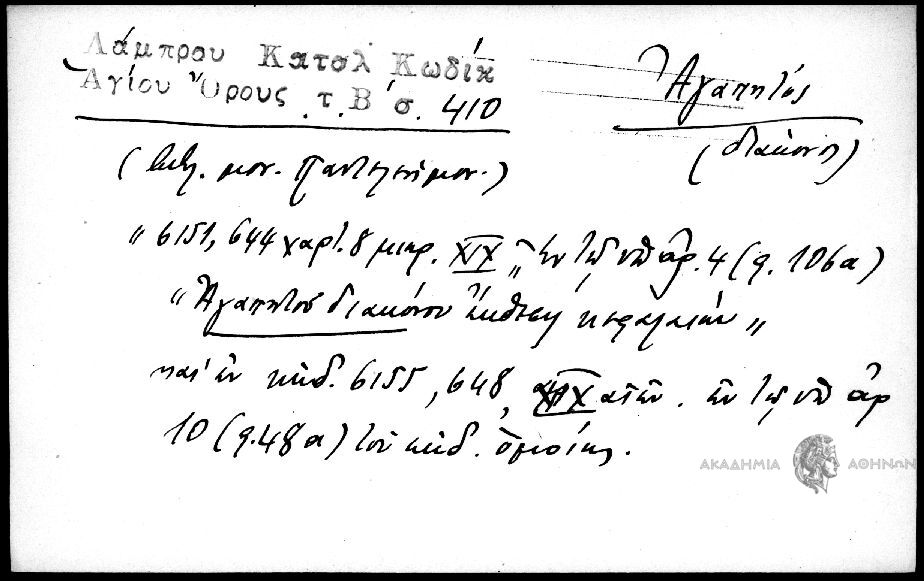 Λάμπρου Κατσλ Κωδίκ
Ἁγίου Ὄρους τ. Β΄ σ. 410
Ἀγαπητός
(διάκονος)
(Βιβλ. μον. Παντελεήμον.)
"6151, 644 χαρτ. 8 μικρ. XIX" ἐν τῷ ὑπ' ἀρ. 4 (φ. 106α)
"Ἀγαπητοῦ διακόνου ἔκθεσις κεφαλαίων"
καὶ ἐν κώδ. 6155, 648, XIX αἰῶν. ἐν τῷ ὑπ' ἀρ
10 (φ. 48α) τοῦ κώδ. ὁμοίως.
ΑΚΑΔΗΜΙΑ ΑΘΗΝΩΝ